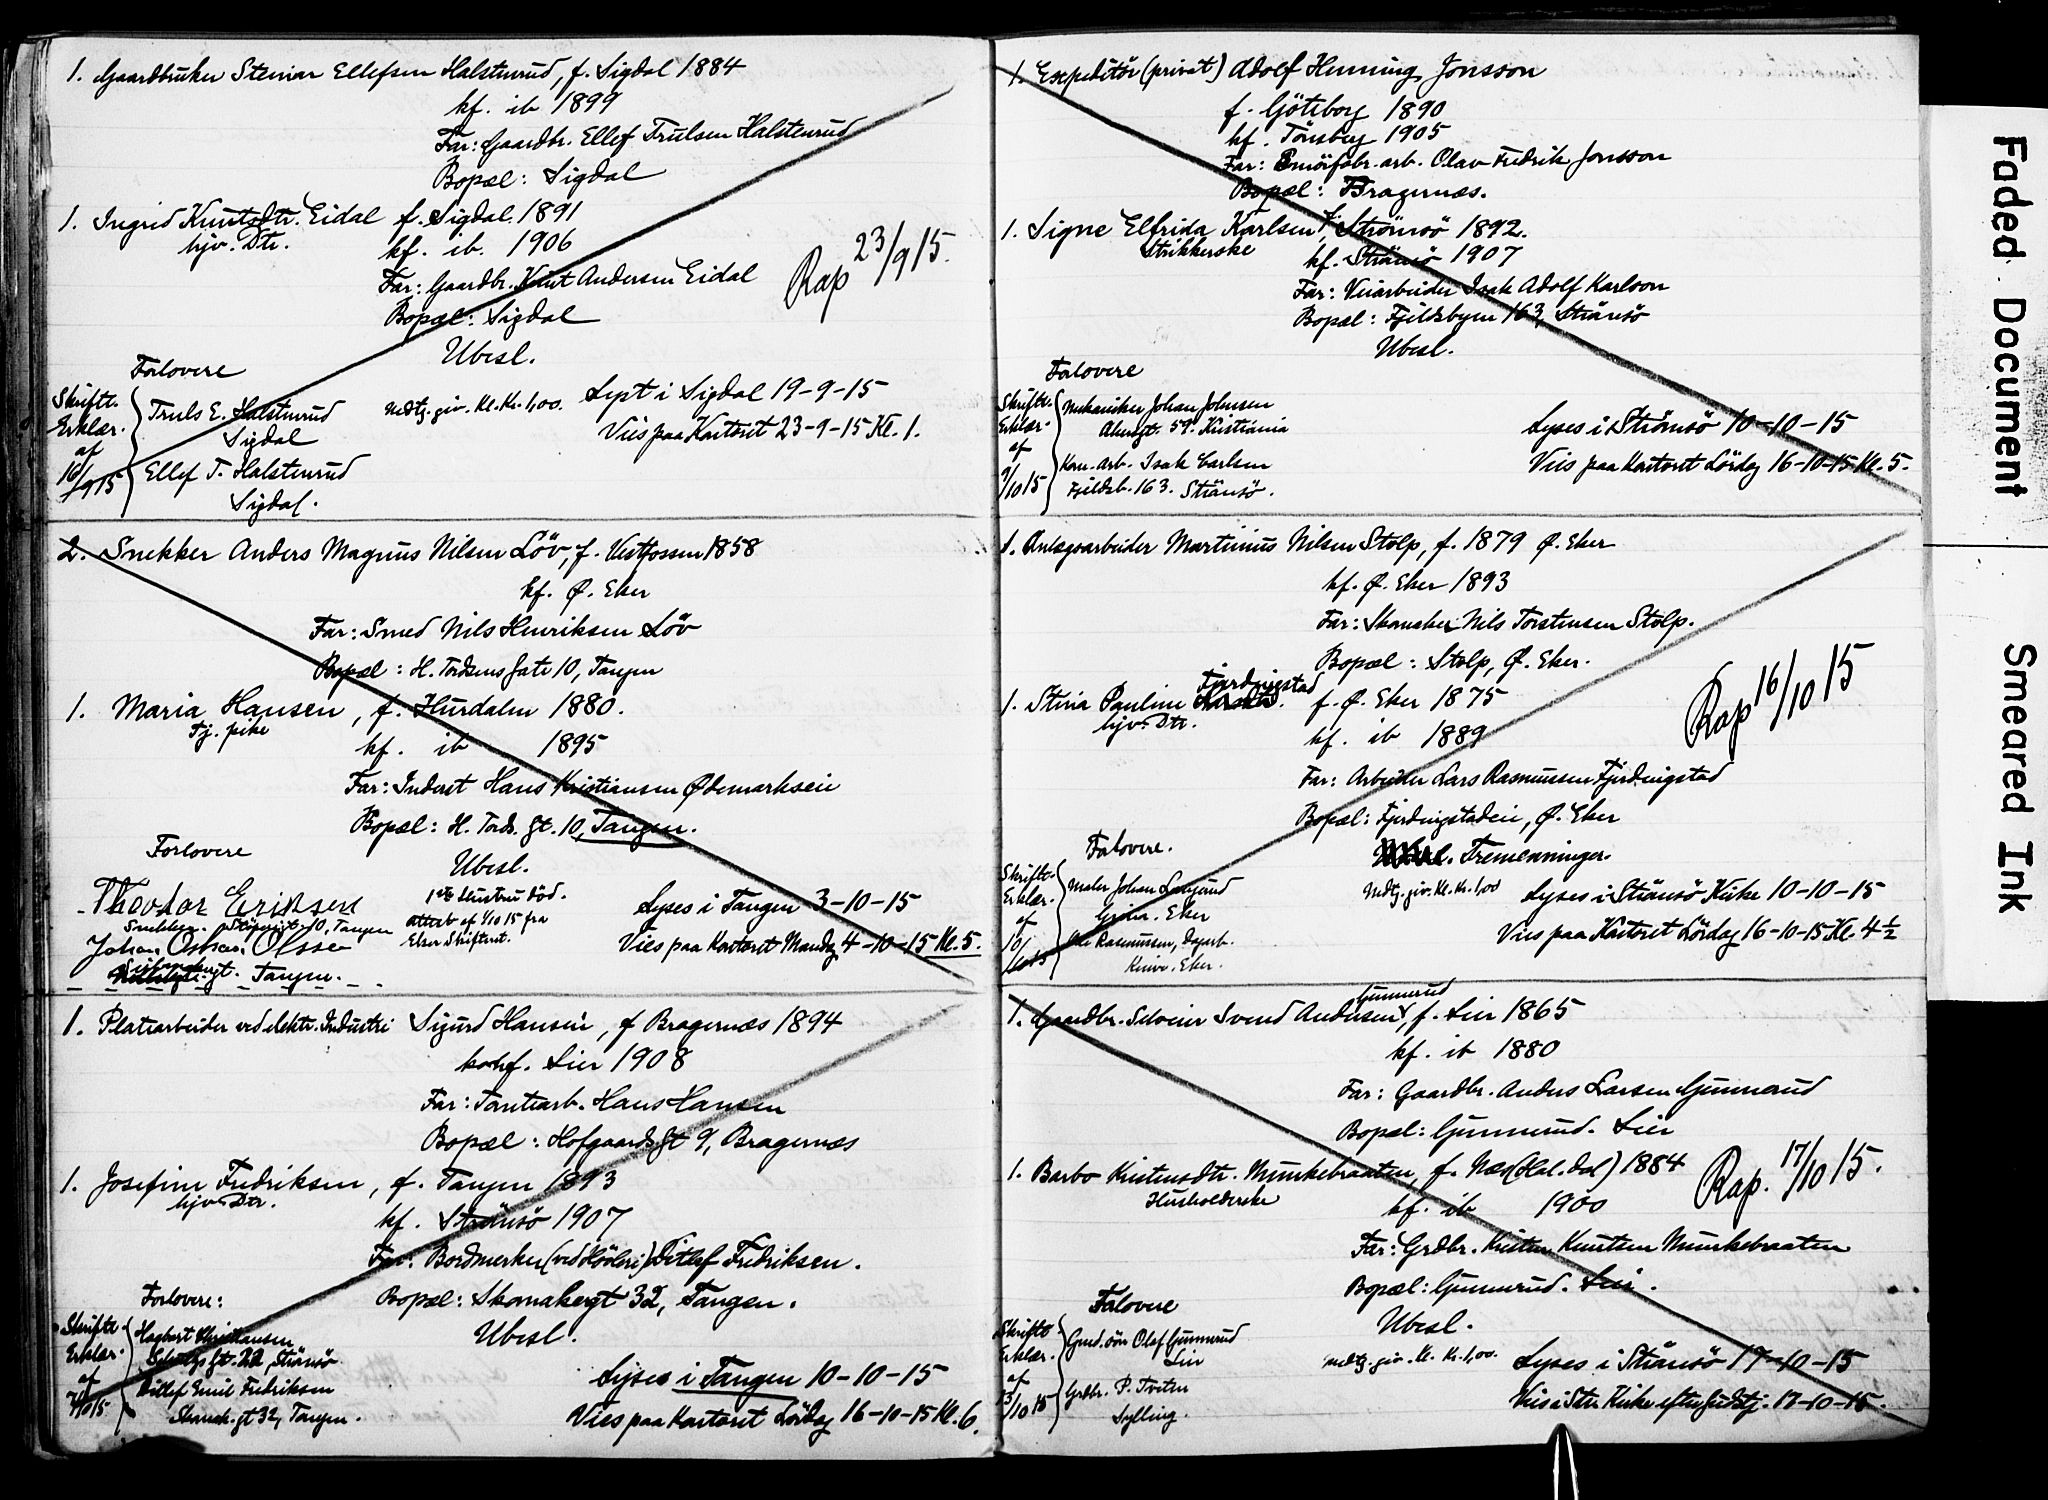 1. Gaardbruker Steinar Ellefsen Halstenrud, f. Sigdal 1884
kf. ib 1899
Far: Gaardbr. Ellef Trulsen Halstenrud
Bopæl: Sigdal
1. Ingrid Knutsdtr. Eidal f. Sigdal 1891
hjv. Dtr.
kf. ib. 1906
Far: Gaardbr. Knut Andersen Eidal
Bopæl: Sigdal
Rap 23/9 15.
Ubesl.
Forlovere
Skriftl. Erklær. af 16/9 15
Truls E. Halstenrud
Sigdal
Ellef T. Halstenrud
Sigdal.
Mdtg. giv. Kl. Kr. 1,00.
Lyst i Sigdal 19-9-15
Vies paa Kontoret 23-9-15 Kl. 1.
2. Snekker Anders Magnus Nilsen Löv, f. Vestfossen 1858
kf. Ø. Eker
Far: Smed Nils Henriksen Löv
Bopæl: H. Tordsens Gate 10, Tangen
1. Maria Hansen, f. Hurdalen 1880.
Tj. pike
kf. ib 1895
Far: Inderst Hans Kristiansen Ødemarkseie
Bopæl: H. Tords. gt. 10, Tangen.
Forlovere
Ubesl.
Theodor Eriksen
Snekker. 10, Tangen
Johan Oskar Olsse
Tangen.
1ste Hustru död.
attest af 1/10 15 fra
Eker Skifteret.
Lyses i Tangen 3-10-15
Vies paa Kontoret Mandag 4-10-15 Kl. 5.
1. Platearbeider ved elektr. Industri Sigurd Hansen, f Bragernæs 1894
konf. Lier 1908
Far: Tomtearb. Hans Hansen
Bopæl: Hofgaards gt 9, Bragernæs
1. Josefine Fredriksen, f. Tangen 1893
hjv. Dtr.
kf. Strömsö 1907
Far: Bordmerker (ved Hövleri) Ditlef Fredriksen.
Bopæl: Skomakergt 32, Tangen.
Forlovere:
Ubesl.
Skriftl. Erklær. af 7/10 15
Hagbart Kristiansen
Schultzs gt. 22, Strömsö
Ditlef Emil Fredriksen
Skomak. gt 32, Tangen.
Lyses i Tangen 10-10-15
Vies paa Kontoret Lördag 16-10-15 Kl. 6.
1. Expeditör (privat) Adolf Henning Jonsson
f. Göteborg 1890
kf. Tönsberg 1905
Far: Smörfabr. arb. Olav Fredrik Jonsson
Bopæl: Bragernæs.
1. Signe Elfrida Karlsen, f. Strömsö 1892.
Strikkerske
kf. Strömsö 1907
Far: Veiarbeider Isak Adolf Karlson
Bopæl: Fjeldsbyen 163, Strömsö
Ubesl.
Forlovere
Skriftl. Erklær. af 9/10 15
Mekaniker Johan Johnsen
Akersgt. 59. Kristiania
Kom. arb. Isak Carlsen
Fjeldsb. 163. Strömsö.
Lyses i Strömsö 10-10-15
Vies paa Kontoret Lördag 16-10-15 Kl. 5.
1. Anlægsarbeider Martinius Nilsen Stolp, f. 1879 Ø. Eker
kf. Ø. Eker 1893
Far: Skomaker Nils Torstensen Stolp.
Bopæl: Stolp, Ø. Eker.
Fjerdingstad
1. Stina Pauline f. Ø. Eker 1875
hjv. Dtr.
kf. ib 1889
Rap 16/10 15
Far: Arbeider Lars Rasmussen Fjerdingstad
Bopæl: Fjerdingstadeie, Ø. Eker
Forlovere.
Tremenninger.
Skriftl. Erklær. af 10/10 15
Maler Johan
Eker
Ole Rasmussen, Dagarb.
Eker.
Mdtg. giv. Kl. Kr. 1,00
Lyses i Strömsö Kirke 10-10-15
Vies paa Kontoret Lördag 16-10-15 Kl. 4½
Gunnerud
1. Gaardbr. Selveier Svend Andersen, f. Lier 1865
kf. ib 1880
Far: Gaardbr. Anders Larsen Gunnerud
Bopæl: Gunnerud. Lier
1. Barbo Kristensdtr. Munkebraaten, f. Næs (Hal. dal) 1884
Husholderske
kf. ib 1900
Rap. 17/10 15.
Far: Grdbr. Kristen Knutsen Munkebraaten
Bopæl: Gunnerud. Lier.
Forlovere
Ubesl.
Skriftl. Erklær. af 13/10 15
Grd. sön Olaf Gunnerud
Lier
Grdbr. P. Tveten
Sylling.
Mdtg. giv. Kl. Kr. 1,00.
Lyses i Strömsö 17-10-15
Vies i Strs Kirke efter Gudstj. 17-10-15.
Faded Document
Smeared Ink